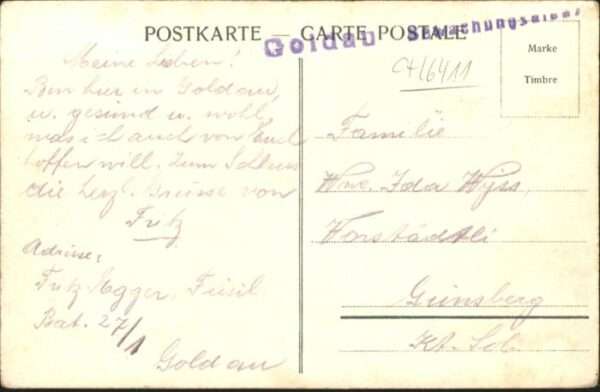 POSTKARTE — CARTE POSTALE
Goldau Bewachungsdienst
Marke
Timbre
CH 6411
Meine Lieben!
Bin hier in Goldau,
u. gesund u. wohl,
was ich auch von Euch
hoffen will. Zum Schluss
die herz. Grüsse von
Fritz
Adresse,
Fritz Egger, Füsil
Bat. 27/1
Goldau
Familie
Wwe. Ida Wyss,
Vorstädtli
Günsberg
Kt. Sol.